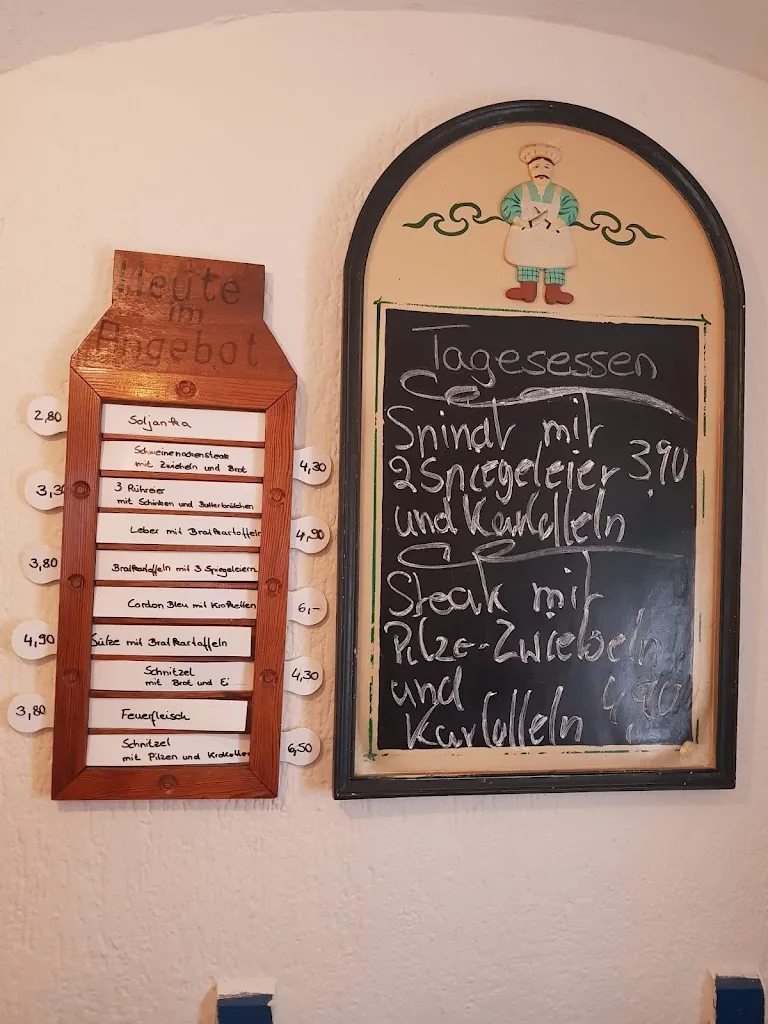 Heute
im
Angebot
2,80
Soljanka
Schweinenackensteak
mit Zwiebeln und Brot
4,30
3,3
3 Rühreier
mit Schinken und Butterbrötchen
Leber mit Bratkartoffeln
4,90
3,80
Bratkartoffeln mit 3 Spiegeleiern
Cordon Bleu mit Kroketten
6,-
4,90
Sülze mit Bratkartoffeln
Schnitzel
mit Brot und Ei
4,30
3,80
Feuerfleisch
Schnitzel
mit Pilzen und Kroketten
6,50
Tagesessen
Spinat mit
2 Spiegeleier 3,90
und Kartoffeln
Steak mit
Pilze-Zwiebeln
und 4,90
Kartoffeln